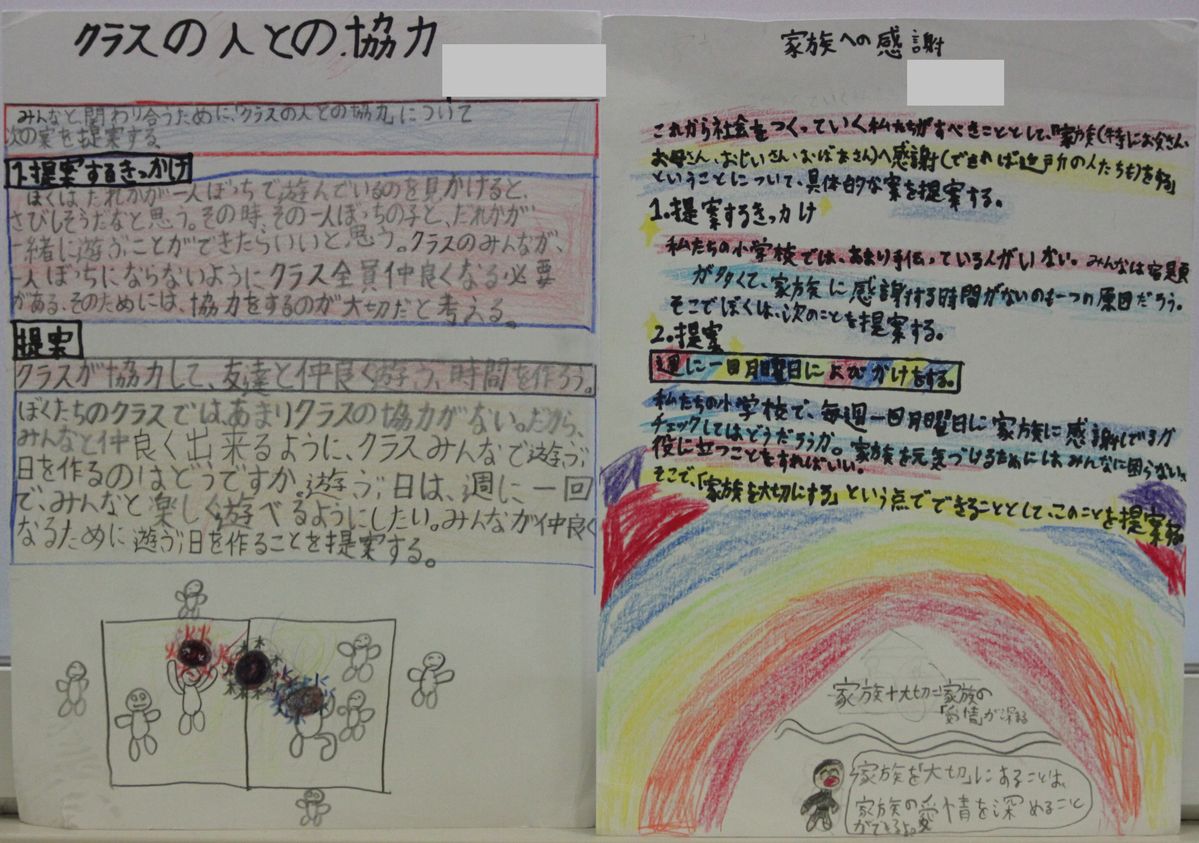 クラスの人との協力
みんなと関わり合うために、「クラスの人との協力」について
次の案を提案する。
1.提案するきっかけ
ぼくはだれかが一人ぼっちで遊んでいるのを見かけると、
さびしそうだなと思う。その時、その一人ぼっちの子と、だれかが
一緒に遊ぶことができたらいいと思う。クラスのみんなが、
一人ぼっちにならないようにクラス全員仲良くなる必要
がある。そのためには、協力をするのが大切だと考える。
提案
クラスが協力して、友達と仲良く遊ぶ、時間を作ろう。
ぼくたちのクラスではあまりクラスの協力がない。だから、
みんなと仲良く出来るように、クラスみんなで遊ぶ
日を作るのはどうですか。遊ぶ日は、週に一回
で、みんなと楽しく遊べるようにしたい。みんなが仲良く
なるために遊ぶ日を作ることを提案する。
火 火
木 木
水
家族への感謝
これから社会をつくっていく私たちがすべきこととして、「家族(特にお父さん、
お母さん、おじいさん、おばあさん)へ感謝(できれば近戸力の人たちも)をする」
ということについて、具体的な案を提案する。
1.提案するきっかけ
私たちの小学校では、あまり手伝っている人がいない。みんなは宿題
が多くて、家族に感謝する時間がないのも一つの原因だろう。
そこでぼくは、次のことを提案する。
2.提案
週に一回月曜日によびかけをする。
私たちの小学校で、毎週一回月曜日に家族に感謝してるか
チェックしてはどうだろうか。家族を元気づけるためにはみんなに困らない、
役に立つことをすればいい。
そこで、「家族を大切にする」という点でできることとして、このことを提案する。
家族+大切=家族の
「愛情」が深まる
家族を「大切」にあることは、
家族の愛情を深めること
ができるよ。